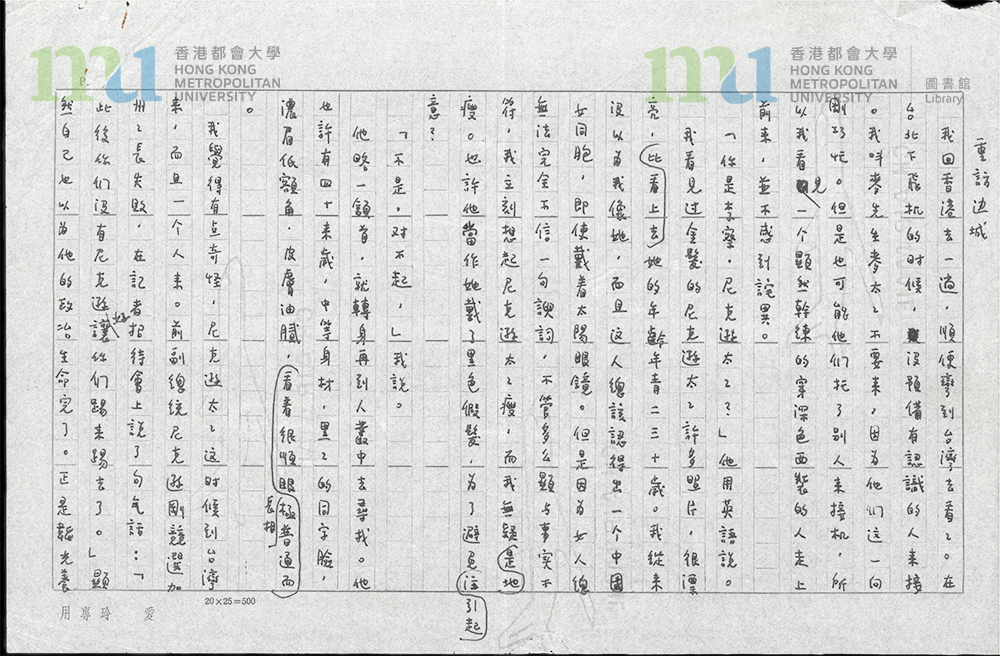 香港都會大學
HONG KONG
METROPOLITAN
UNIVERSITY
香港都會大學
HONG KONG
METROPOLITAN
UNIVERSITY
圖書館
Library
P.
重訪边城
我回香港去一趟，順便彎到台灣去看看。在
台北下飛机的时候，沒預備有認識的人來接
。我叫麥先生麥太太不要來，因為他們这一向
剛巧忙。但是也可能他們托了别人來接机，所
以我看見一个顯然幹練的穿深色西裝的人走上
前來，並不感到詫異。
「你是李察．尼克遜太太？」他用英語說。
我看見过金髮的尼克遜太太許多照片，很漂
亮，比看上去她的年齡年青二三十歲。我從來
沒以為我像她，而且这人總該認得出一个中國
女同胞，即使戴着太陽眼鏡。但是因為女人總
無法完全不信一句諛詞，不管多么顯与事实不
符，我立刻想起尼克遜太太瘦，而我無疑是地
瘦。也許他當作她戴了黑色假髮，為了避免注引起
意？
「不是，对不起，」我說。
他略一頷首，就轉身再到人叢中去尋找。他
也許有四十來歲，中等身材，黑黑的同字臉，
濃眉低額角，皮膚油膩，看着很順眼極普通而長相
。
我覺得有点奇怪，尼克遜太太这时候到台灣
來，而且一个人來。前副總統尼克遜剛競選加
州州長失敗，在記者招待會上說了句气話：「
此後你們沒有尼克遜好讓你們踢來踢去了。」顯
然自己也以為他的政治生命完了。正是韜光養
20×25=500
愛玲專用